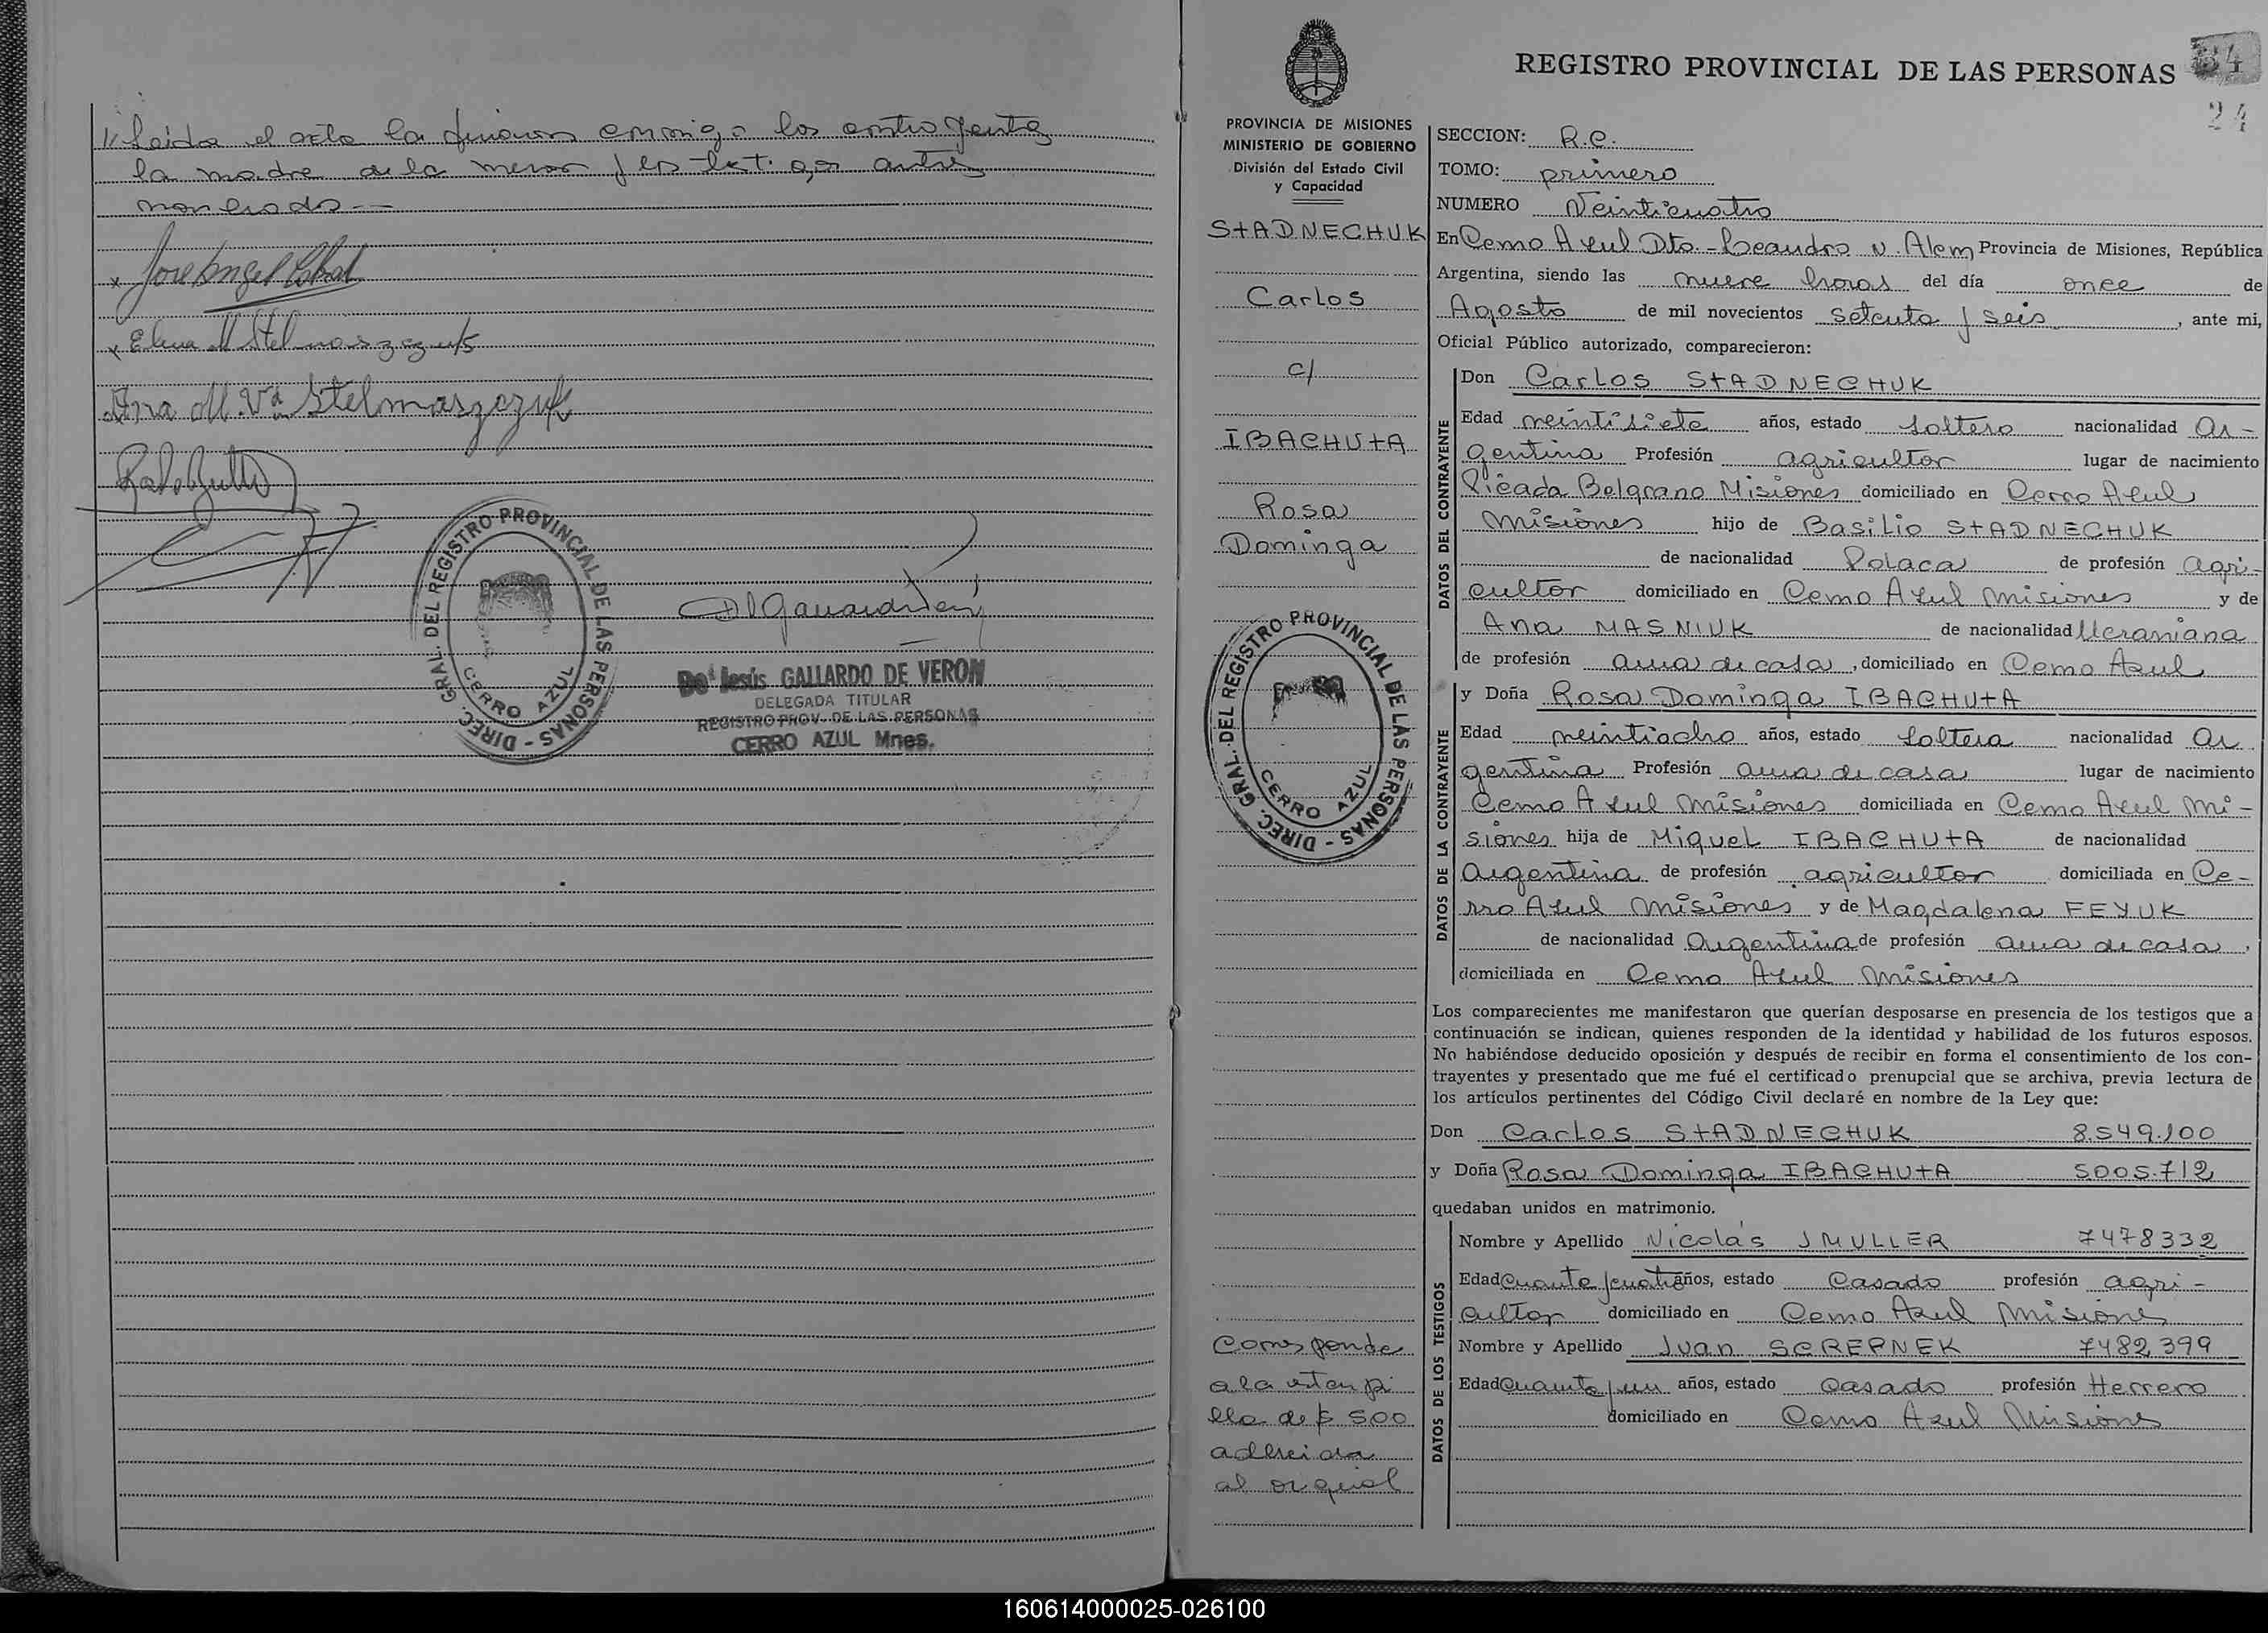 Leida el acta la firmaron conmigo los contrayentes
la madre de la menor y los testigos antes
nombrados —
x Jose Angel Cabral
x Elena M Stelmaszczuk
Ana M. Vda Stelmaszczuk
DIREC. GRAL. DEL REGISTRO PROVINCIAL DE LAS PERSONAS -
CERRO AZUL
Jesús GALLARDO DE VERON
DELEGADA TITULAR
REGISTRO PROV. DE LAS PERSONAS
CERRO AZUL Mnes.
REGISTRO PROVINCIAL DE LAS PERSONAS
34
24
PROVINCIA DE MISIONES
MINISTERIO DE GOBIERNO
División del Estado Civil
y Capacidad
STADNECHUK
Carlos
c/
IBACHUTA
Rosa
Dominga
DIREC. GRAL. DEL REGISTRO PROVINCIAL DE LAS PERSONAS -
CERRO AZUL
Corresponde
a la estampi
lla de $ 500
adherida
al original
SECCION: R.C.
TOMO: primero
NUMERO Veinticuatro
En Cerro Azul Dto. - Leandro N. Alem Provincia de Misiones, República
Argentina, siendo las nueve horas del día once de
Agosto de mil novecientos setenta y seis, ante mi,
Oficial Público autorizado, comparecieron:
DATOS DEL CONTRAYENTE
Don Carlos STADNECHUK
Edad veintisiete años, estado soltero nacionalidad Ar-
gentina Profesión agricultor lugar de nacimiento
Picada Belgrano Misiones domiciliado en Cerro Azul
Misiones hijo de Basilio STADNECHUK
de nacionalidad Polaca de profesión agri-
cultor domiciliado en Cerro Azul Misiones y de
Ana MASNIUK de nacionalidad Ucraniana
de profesión ama de casa, domiciliado en Cerro Azul
DATOS DE LA CONTRAYENTE
y Doña Rosa Dominga IBACHUTA
Edad veintiocho años, estado soltera nacionalidad Ar
gentina Profesión ama de casa lugar de nacimiento
Cerro Azul Misiones domiciliada en Cerro Azul Mi-
siones hija de Miguel IBACHUTA de nacionalidad
Argentina de profesión agricultor domiciliada en Ce-
rro Azul Misiones y de Magdalena FEYUK
de nacionalidad Argentina de profesión ama de casa,
domiciliada en Cerro Azul Misiones
Los comparecientes me manifestaron que querían desposarse en presencia de los testigos que a
continuación se indican, quienes responden de la identidad y habilidad de los futuros esposos.
No habiéndose deducido oposición y después de recibir en forma el consentimiento de los con-
trayentes y presentado que me fué el certificado prenupcial que se archiva, previa lectura de
los artículos pertinentes del Código Civil declaré en nombre de la Ley que:
Don Carlos STADNECHUK 8.549.100
y Doña Rosa Dominga IBACHUTA 5.005.712
quedaban unidos en matrimonio.
DATOS DE LOS TESTIGOS
Nombre y Apellido Nicolás JMULLER 7478332
Edad Cuarenta y cuatro años, estado Casado profesión agri-
cultor domiciliado en Cerro Azul Misiones
Nombre y Apellido Juan SCREPNEK 7482,399
Edad Cuarenta y un años, estado Casado profesión Herrero
domiciliado en Cerro Azul Misiones
160614000025-026100